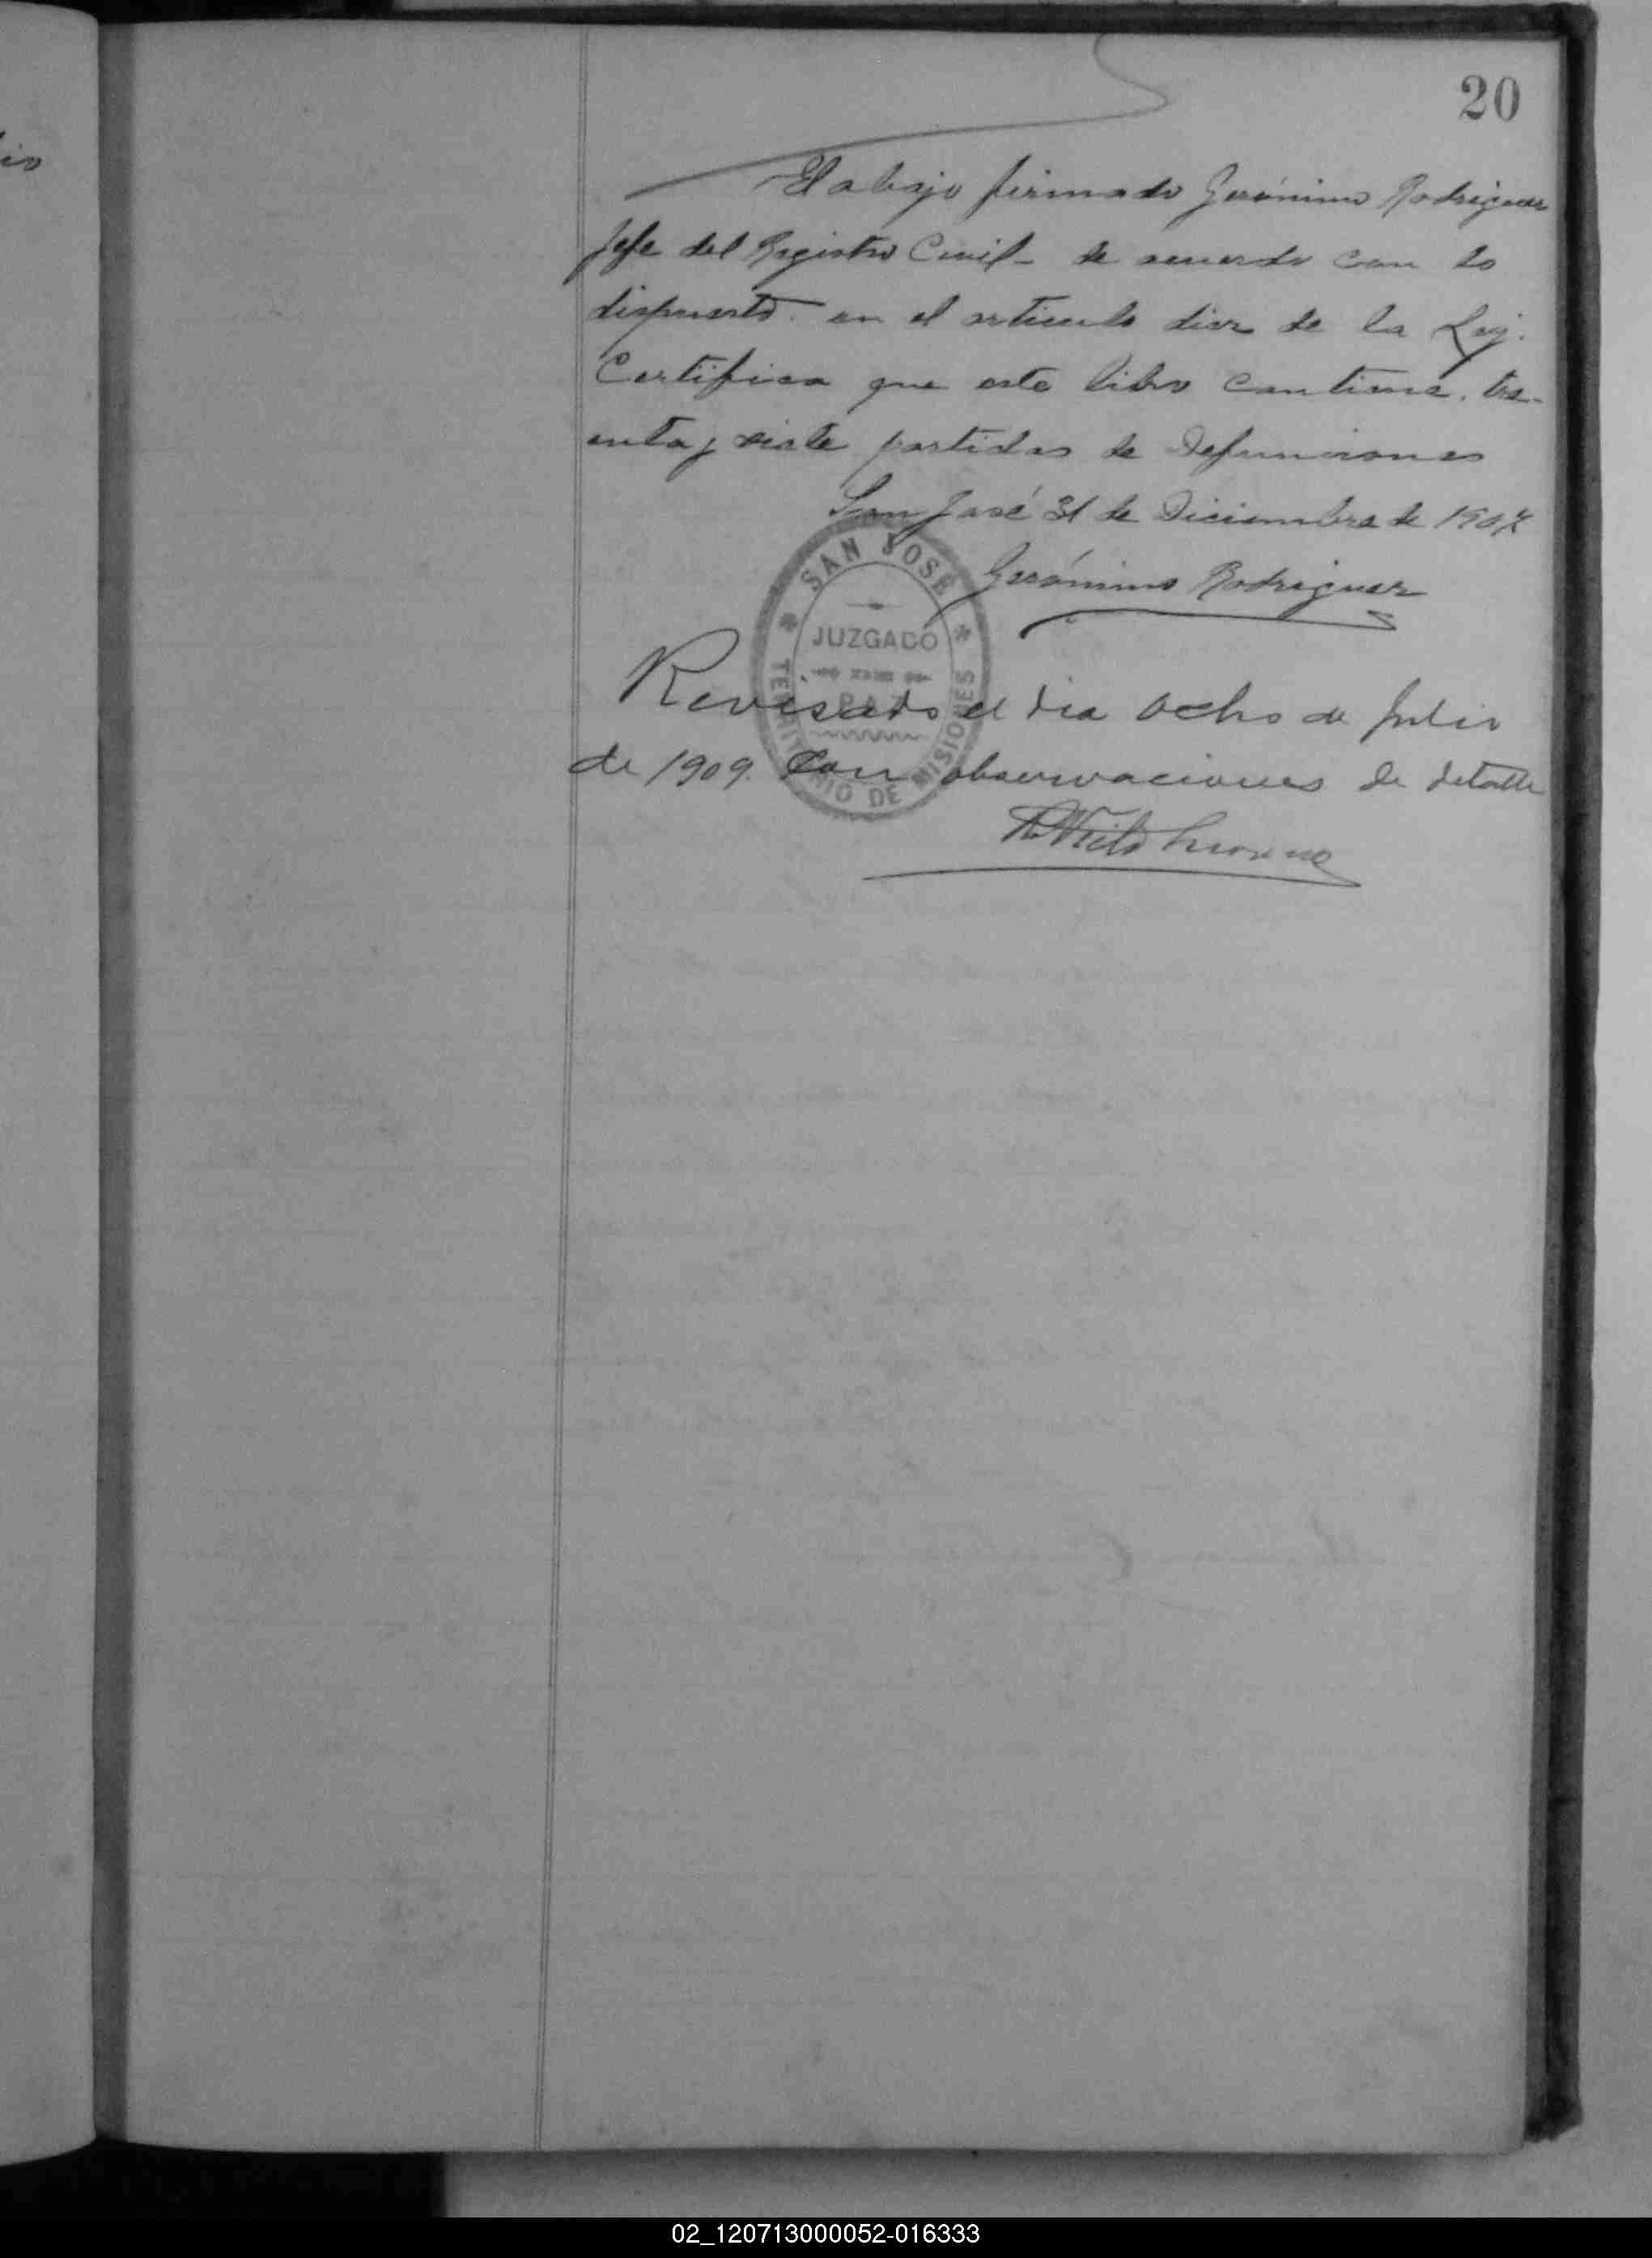 20
El abajo firmado Gerónimo Rodriguez
Jefe del Registro Civil - de acuerdo con lo
dispuesto en el articulo diez de la Ley.
Certifica que este libro contiene tre-
inta y siete partidas de Defunciones
San José 31 de Diciembre de 1907
Gerónimo Rodriguez
SAN JOSÉ
JUZGADO
PAZ
TERRITORIO DE MISIONES
Revisado el dia ocho de Julio
de 1909. Con observaciones de detalle
02_120713000052-016333